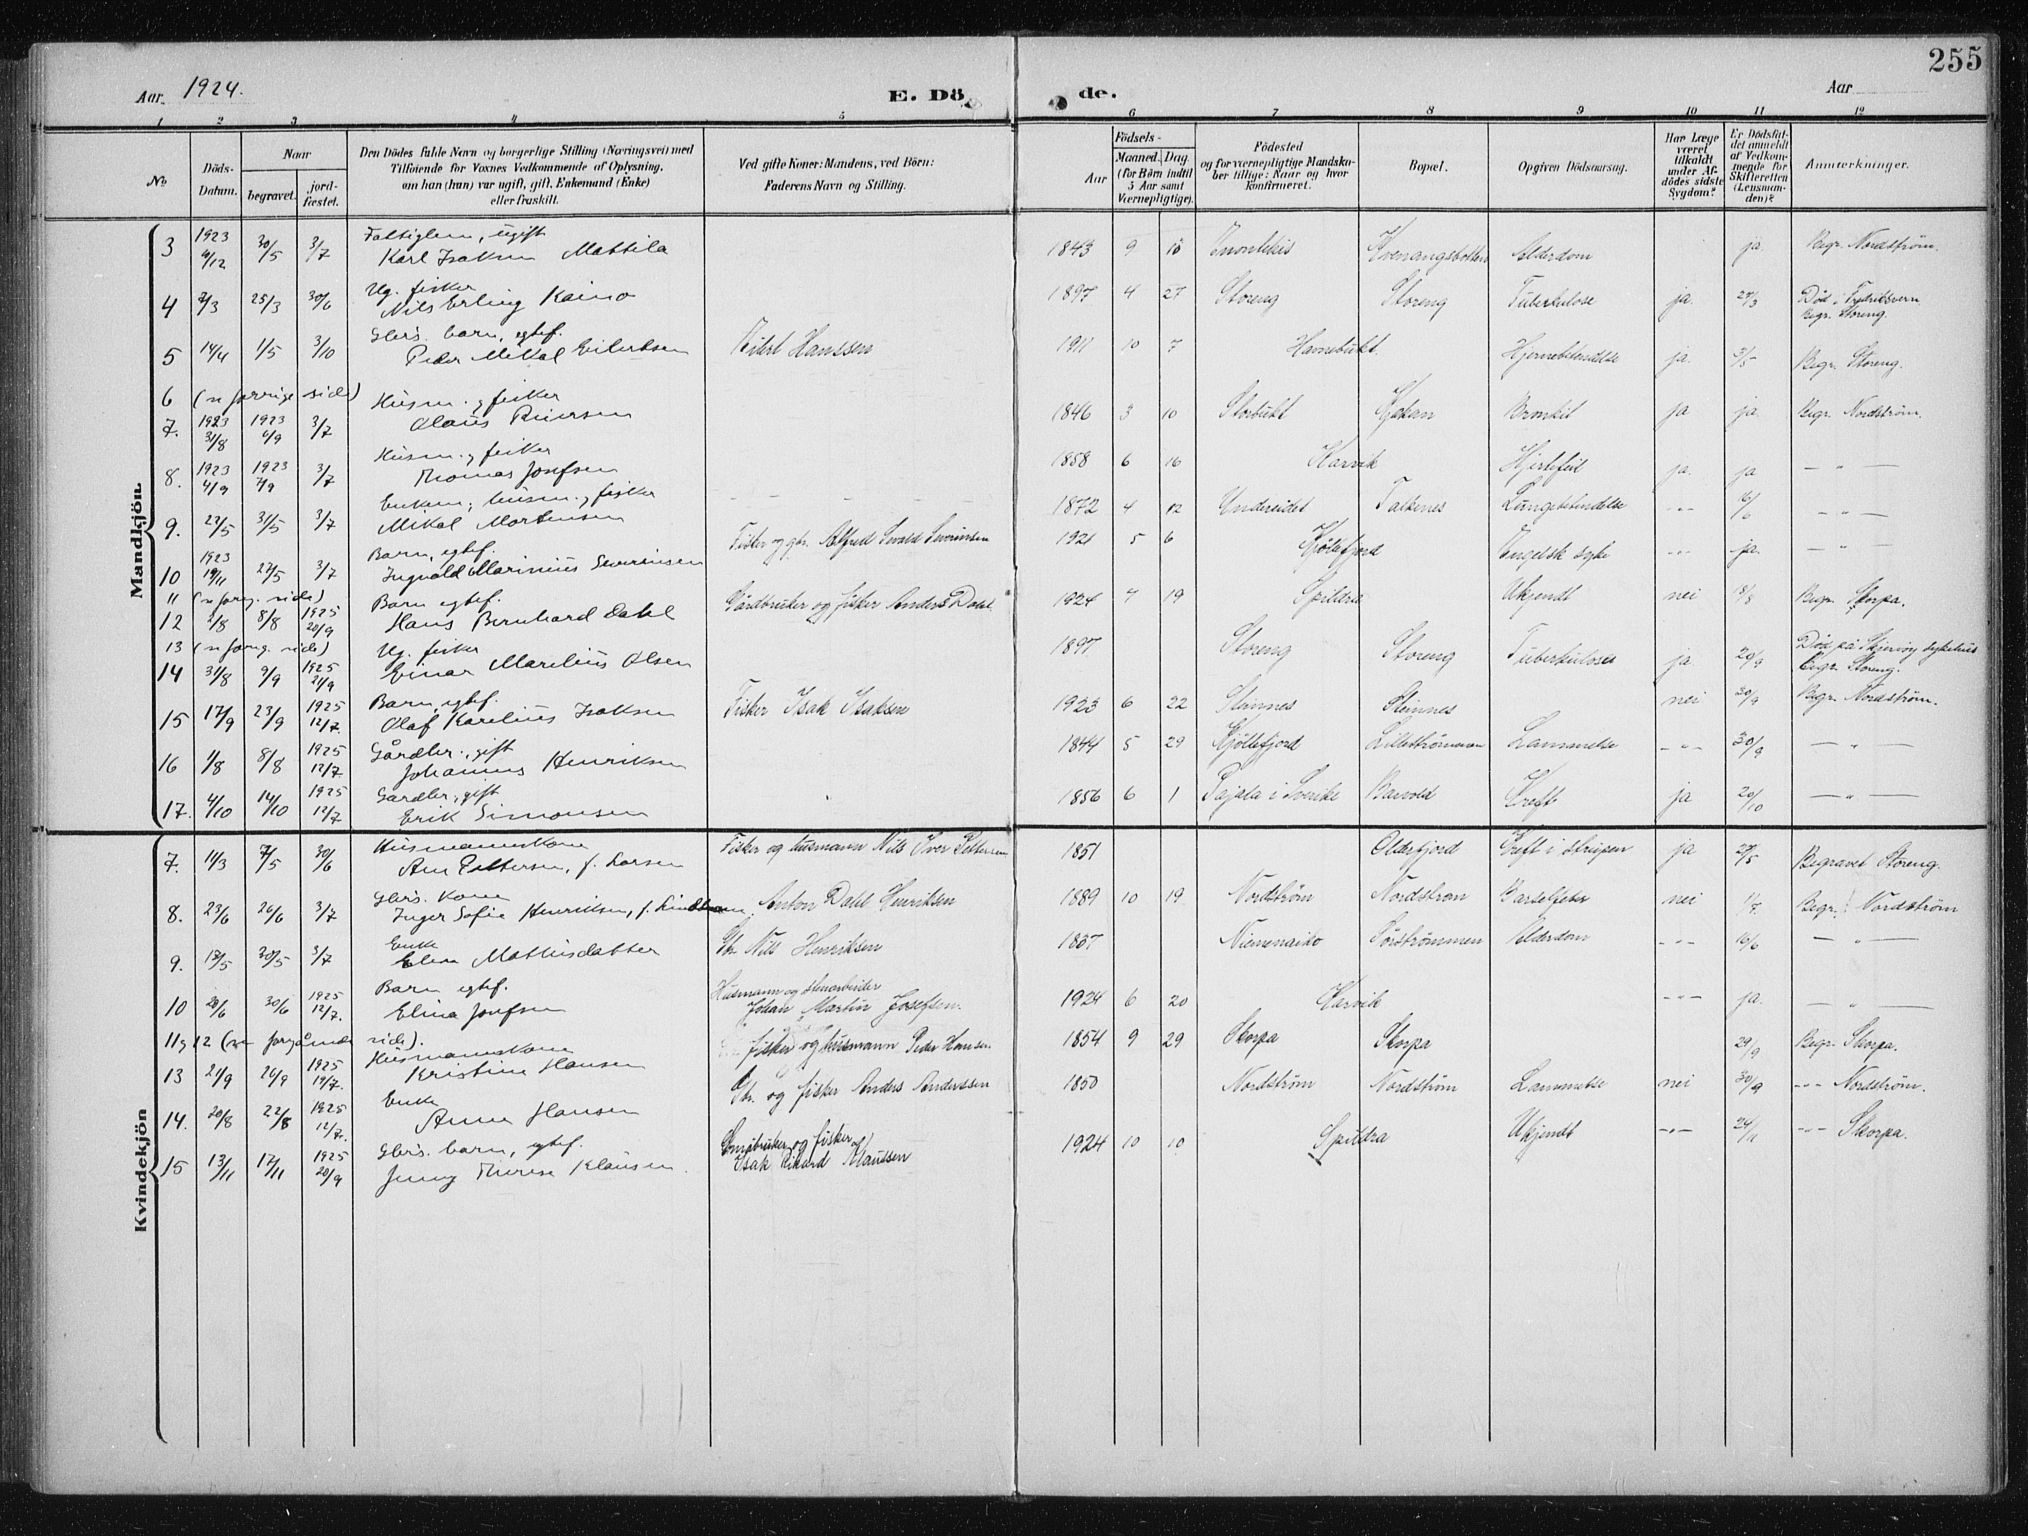 255
Aar 1924.
E. Döde.
Aar
1 2 3 4 5 6 7 8 9 10 11 12
No.
Döds-Datum.
Naar
begravet.
jord-fæstet.
Den Dödes fulde Navn og borgerlige Stilling (Næringsvei) med
Tilföiende for Voxnes Vedkommende af Oplysning,
om han (hun) var ugift, gift, Enkemand (Enke)
eller fraskilt.
Ved gifte Koner: Mandens, ved Börn:
Faderens Navn og Stilling.
Födsels-
Aar
Maaned. Dag
(for Börn indtil
5 Aar samt
Værnepligtige).
Födested
og for værnepligtige Mandska-
ber tillige: Naar og hvor
konfirmeret.
Bopæl.
Opgiven Dödsaarsag.
Har Læge
været
tilkaldt
under Af-
dödes sidste
Sygdom?
Er Dödsfal-
det anmeldt
af Vedkom-
mende for
Skifteretten
(Lensman-
den)?
Anmærkninger.
Mandkjön.
3 1923 6/12 30/5 3/7 Fattiglem, ugift Karl Isaksen Mattila 1843 9 10 Enontekis Kvenangsbotten Alderdom ja Begr. Nordstrøm.
4 7/3 25/3 30/6 Ug. fisker Nils Erling Kaino 1897 4 27 Storeng Storeng Tuberkulose ja 27/3 Død i Fredriksvern. Begr. Storeng.
5 14/4 1/5 3/10 Gbrs. barn, egtef. Peder Mikal Eilertsen Eilert Hanssen 1911 10 7 Havnebukt Hjernebetendelse ja 3/5 Begr. Storeng.
6 (se forrige side)
7. 1923 31/8 1923 6/9 3/7 Husm. og fisker Olaus Reiersen 1846 3 10 Storbukt Kjækan Bronkit ja ja Begr. Nordstrøm.
8. 1923 4/9 1923 7/9 3/7 Husm. og fisker Thomas Josefsen 1858 6 16 Karvik Hjertefeil ja ja — " —
9. 23/5 31/5 3/7 Enkem; husm. og fisker Mikal Mortensen 1872 4 12 Undereidet Talkenes Lungebetendelse -"- 16/6 — " —
10 1923 19/11 27/5 3/7 Barn, egtef. Ingvald Marinius Severinsen Fisker og gbr. Alfred Sevald Severinsen 1921 5 6 Kjöllefjord Engelsk syke -"- ja. — " —
11 (se forrg. side)
12 2/8 8/8 1925 20/9 Barn egtef. Hans Bernhard Dahl Gårdbruker og fisker Anders Dahl. 1924 7 19 Spildra Ukjendt nei 18/8 Begr. Skorpa.
13 (se forrg. side)
14 31/8 9/9 1925 21/9 Ug. fisker Einar Marelius Olsen 1897 Storeng Storeng Tuberkulose ja 20/9 Död på Skjervøy sykehus Begr. Storeng.
15 17/9 23/9 1925 12/7. Barn, egtef. Olaf Karelius Isaksen Fisker Isak Isaksen 1923 6 22 Steinnes Steinnes nei 30/9 Begr. Nordstrøm.
16 1/8 8/8 1925 12/7. Gårdbr., gift Johannes Henriksen 1844 5 29 Kjöllefjord Lillestrømmen Lammelse -"- 30/9 — " —
17. 4/10 14/10 1925 12/7 Gardbr., gift Erik Simonsen 1856 6 1 Pajala i Sverike Barvold Kreft ja 20/10 — " —
Kvindekjön
7. 11/3 7/5 30/6 Husmannskone Ane Pettersen, f. Larsen Fisker og husmann Nils Iver Pettersen 1851 Olderfjord Kreft i strupen ja 27/5 Begravet Storeng.
8. 23/6 26/6 3/7 Gbrs. kone Inger Sofie Henriksen, f. Anton Dahl Henriksen 1889 10 19 Nordstrøm Nordstrøm Barselfeber nei 1/7. Begr. Nordstrøm
9. 13/5 30/5 3/7 Enke Elen Mathisdatter Gbr. Nils Henriksen 1837 Niemenaiko Sørstrømmen Alderdom -"- 16/6 — " —
10 20/6 30/6 1925 12/7. Barn egtef. Elina Josefsen Husmann og stenarbeider Johan Martin Josefsen. 1924 6 20 Karvik -"- ja. — " —
11 og 12 (se forgående side).
13 21/9 26/9 1925 19/7. Husmannskone Kristine Hansen fisker og husmann Peder Hansen 1854 9 29 Skorpa Skorpa 29/9 Begr. Skorpa.
14. 20/8 22/8 1925 12/7. Enke Anne Hansen Gbr. og fisker Anders Anderssen 1850 Nordstrøm Nordstrøm Lammelse nei 30/9 -"- Nordstrøm.
15 13/11 17/11 1925 20/9 Gbrs. barn, egtef. Jenny Therese Klausen. Småbruker og fisker Isak Rikard Klaussen 1924 10 10 Spildra Ukjendt -"- 24/11 -"- Skorpa.